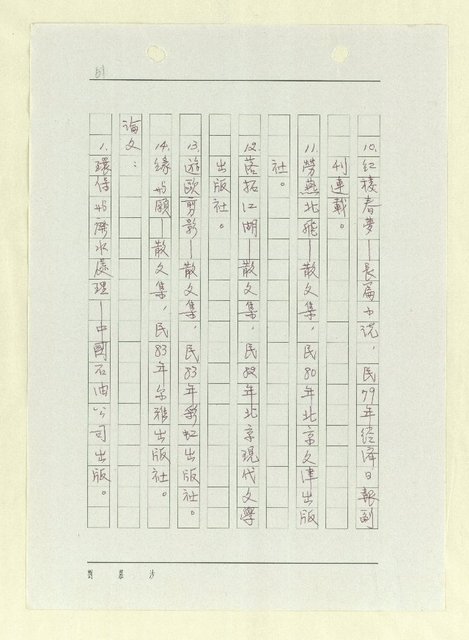 10.紅樓春夢—長篇小說，民79年經濟日報副
刊連載。
11.勞燕北飛—散文集，民80年北京文津出版
社。
12.落拓江湖—散文集，民82年北京現代文學
出版社。
13.遊歐剪影—散文集，民83年彩虹出版社。
14.緣與願—散文集，民83年尔雅出版社。
論文：
1.環保與廢水處理—中國石油公司出版。
劉慕沙